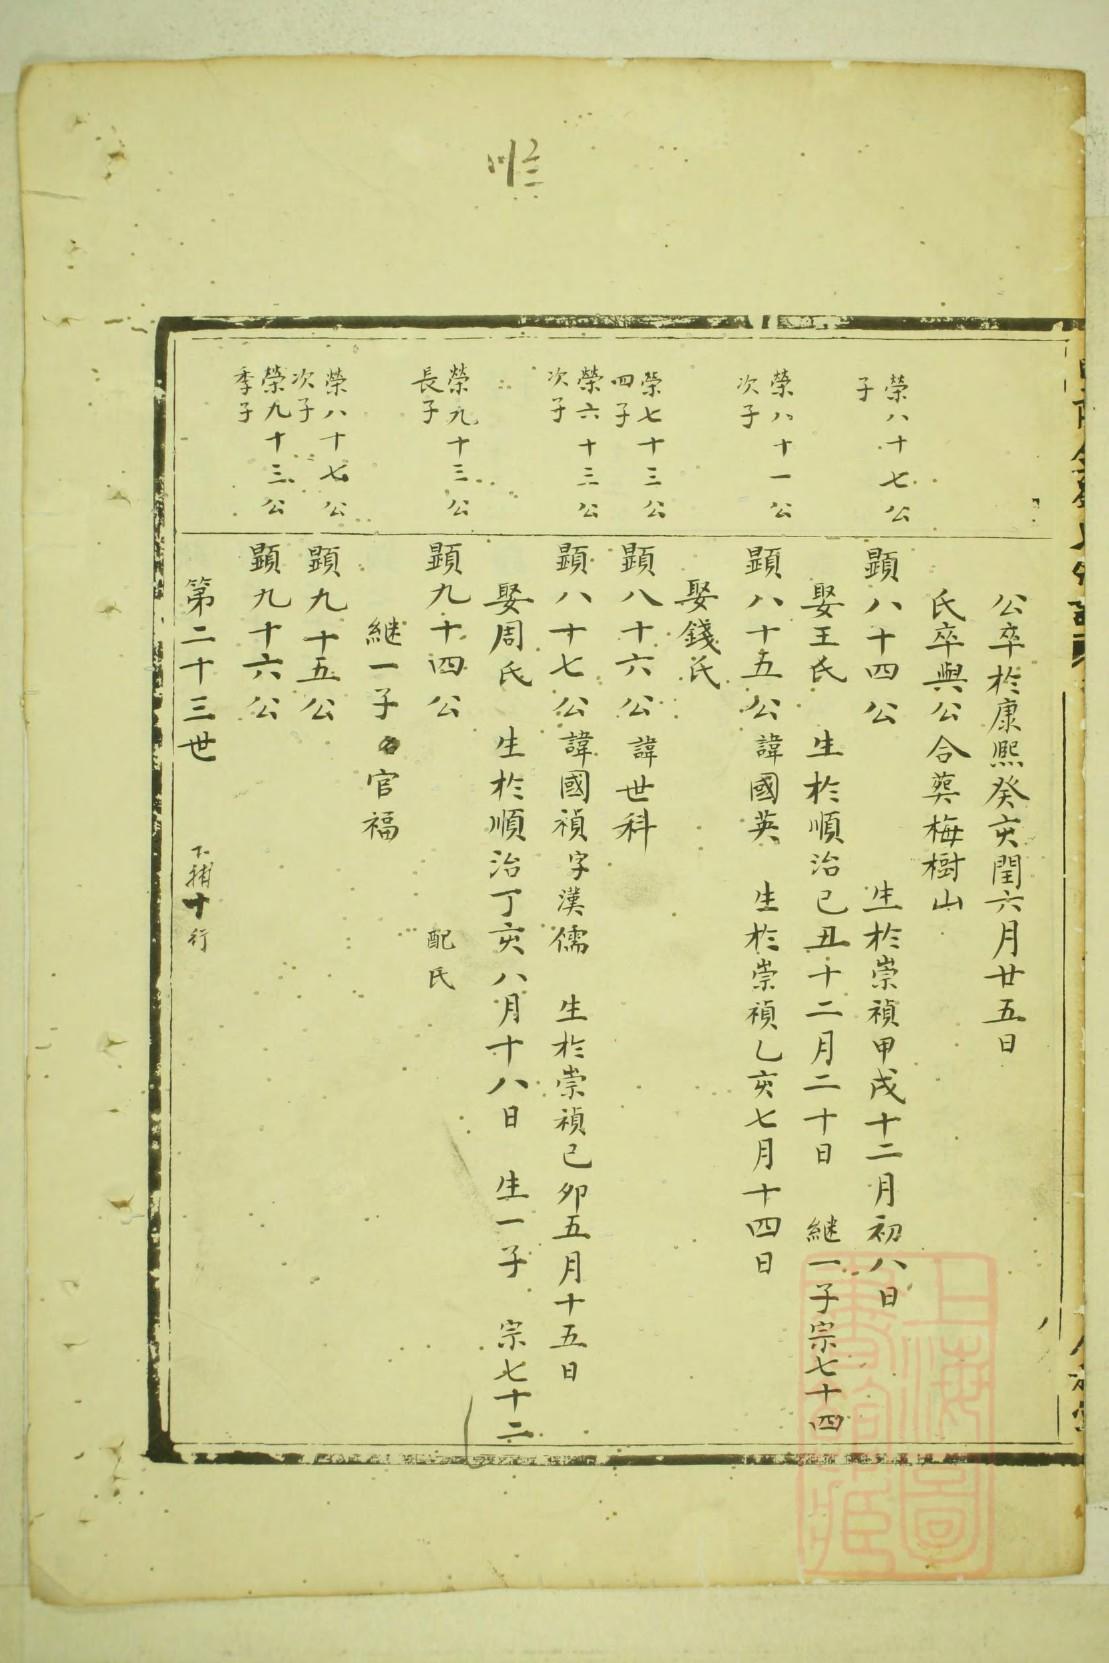 公卒於康熙癸亥閏六月廿五日
氏卒與公合葬梅樹山
榮八十七公
子
顯八十四公 生於崇禎甲戌十二月初八日
娶王氏 生於順治己丑十二月二十日 継一子宗七十四
榮八十一公
次子
顯八十五公諱國英 生於崇禎乙亥七月十四日
娶錢氏
榮七十三公
四子
顯八十六公諱世科
榮六十三公
次子
顯八十七公諱國禎字漢儒 生於崇禎己卯五月十五日
娶周氏 生於順治丁亥八月十八日 生一子 宗七十二
榮九十三公
長子
顯九十四公 配氏
継一子名官福
榮八十七公
次子
顯九十五公
榮九十三公
季子
顯九十六公
第二十三世 下補十行
上海圖
書館藏